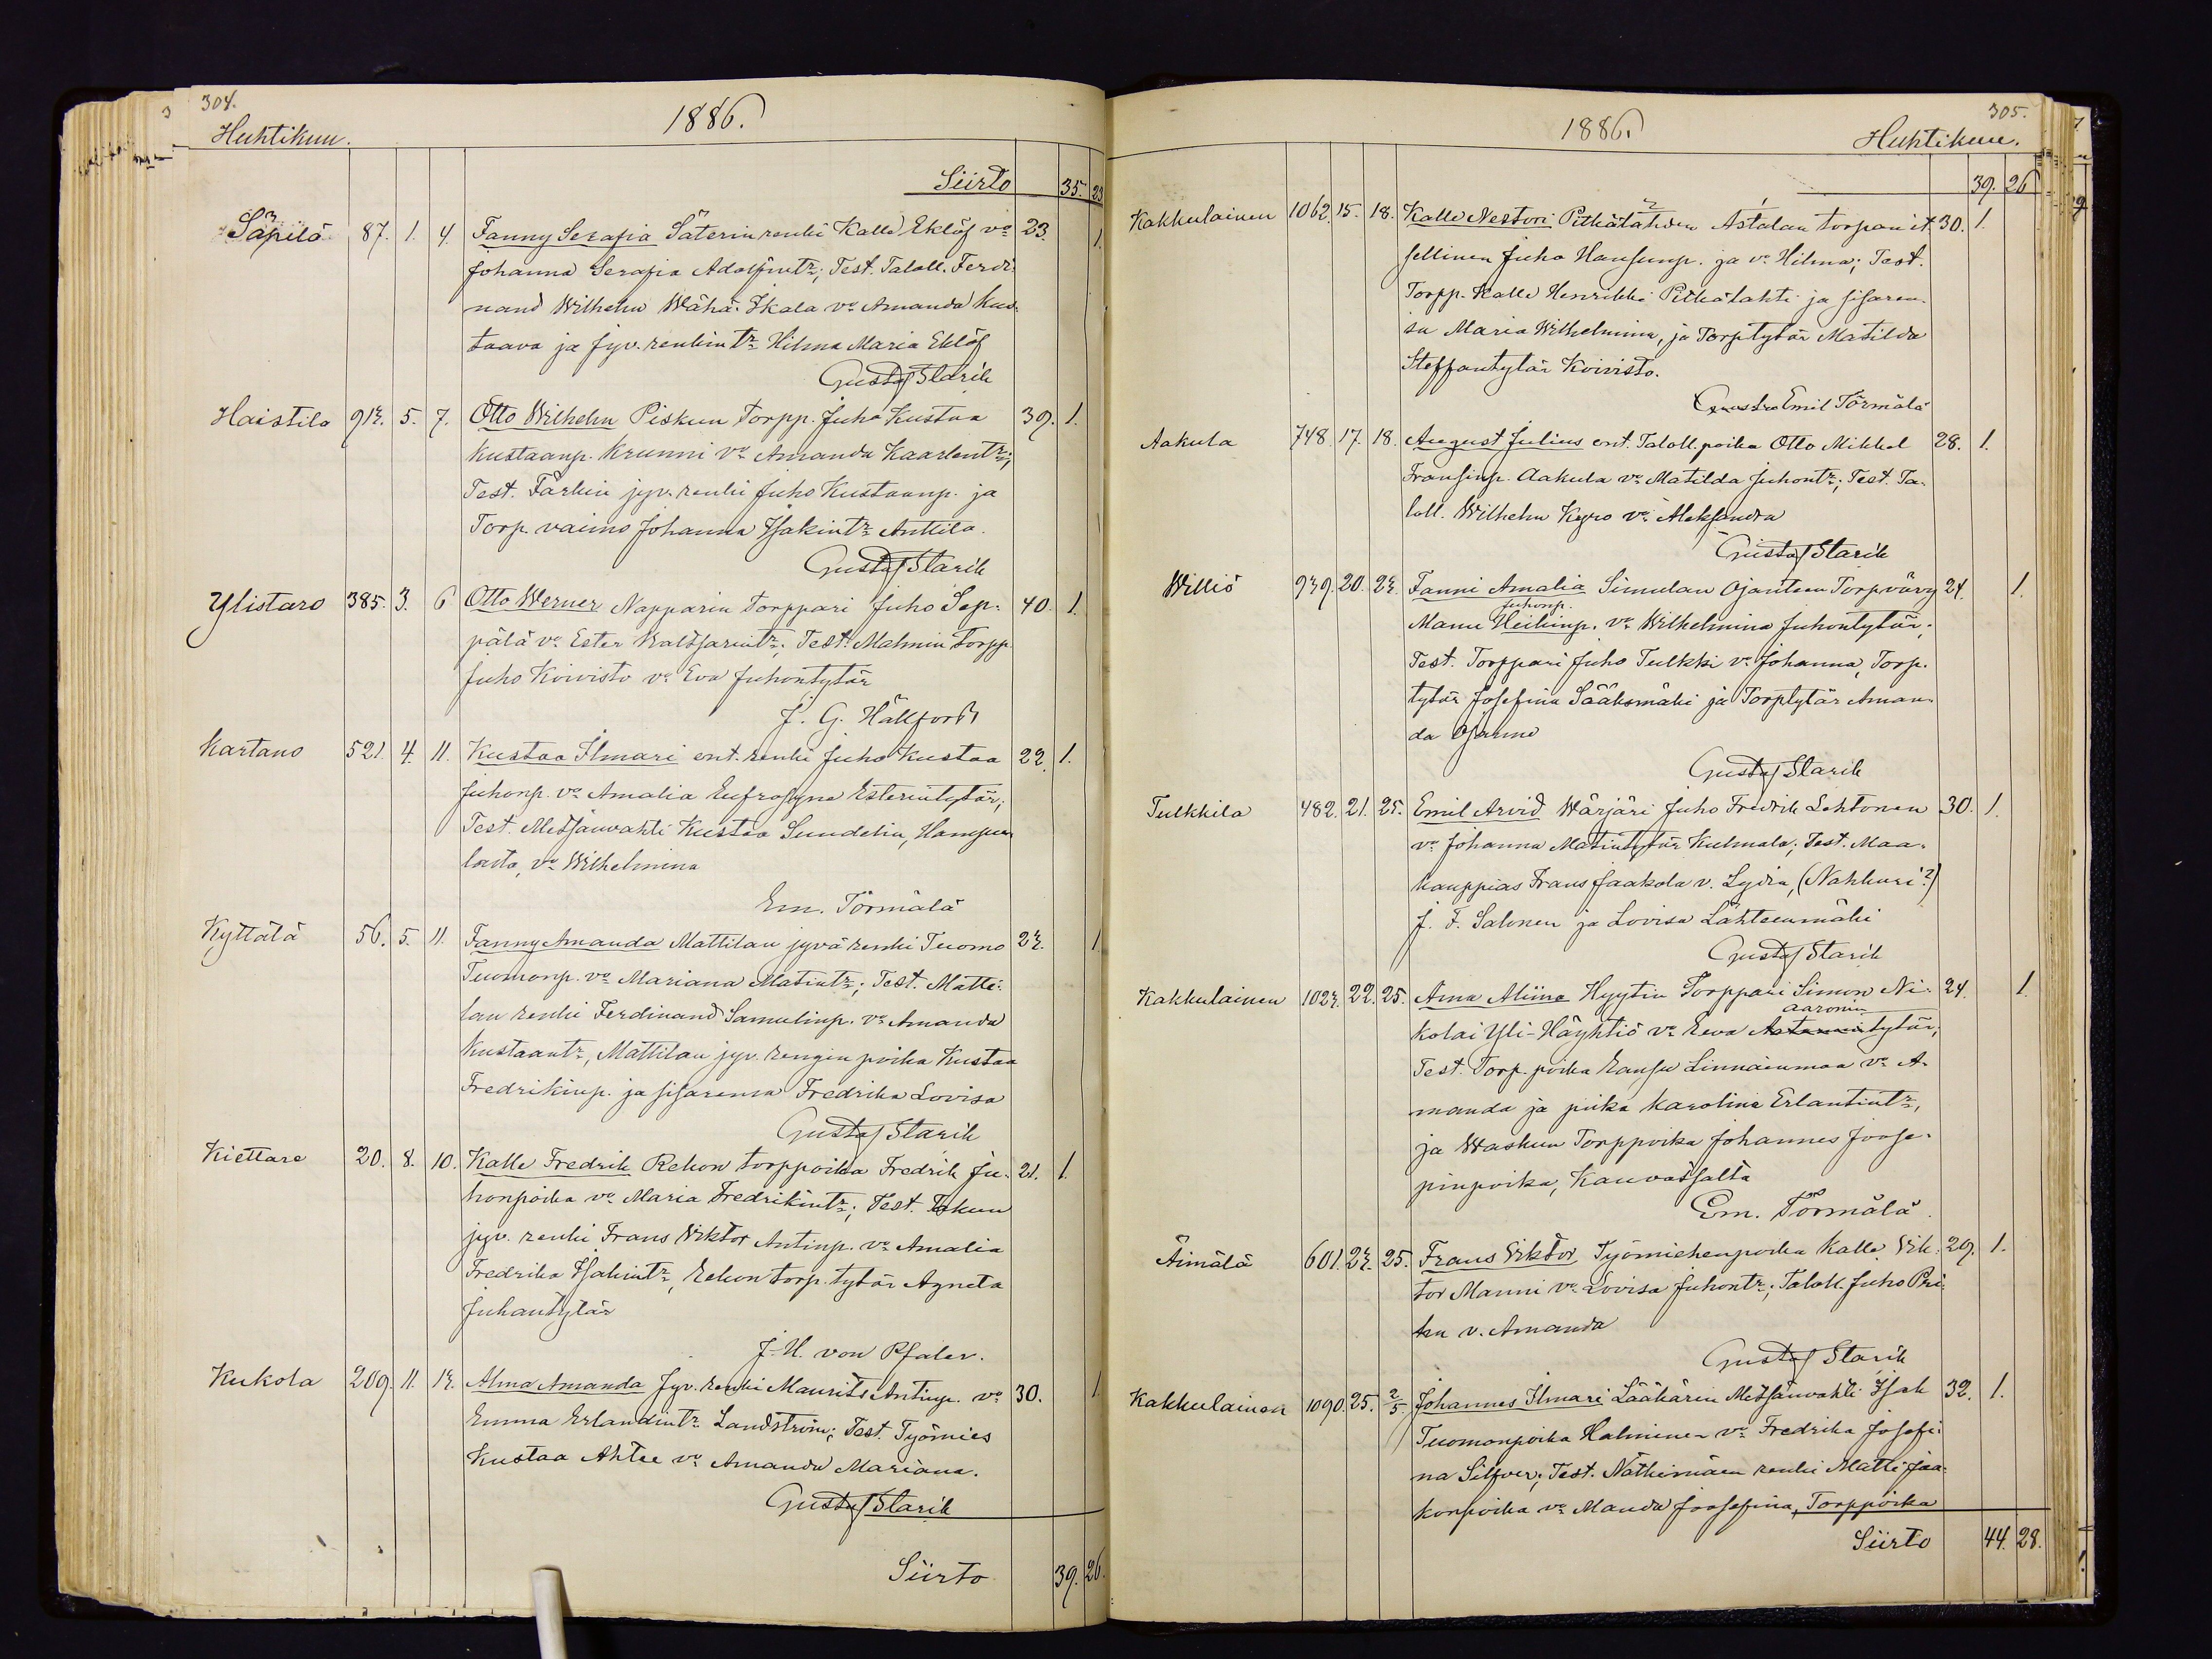 304.
Huhtikuu.
1886.
Siirto 35. 23
Säpilä 87. 1. 4. Fanny Serafia Säterin renki Kalle Eklöf vo 23. 1.
Johanna Serafia Adolfintr; Test. Taloll. Ferdi-
nand Wilhelm Wähä-Ikala vo Amanda Kus-
taava ja jyv. renkintr Hilma Maria Eklöf
Gustaf Starik
Haistila 912. 5. 7. Otto Wilhelm Piskun Torpp. Juho Kustaa 39. 1.
Kustaanp. Krunni vo Amanda Kaarlentr;
Test. Färkin jyv. renki Juho Kustaanp. ja
Torp. vaimo Johanna Isakintr Anttila.
Gustaf Starik
Ylistaro 385. 3. 6 Otto Werner Napparin Torppari Juho Sep- 40. 1.
pälä vo Ester Baltsarintr; Test. Malmin Torpp.
Juho Koivisto vo Eva Juhontytär
J. G. Hällfors
Kartano 521. 4. 11. Kustaa Ilmari ent. renki Juho Kustaa 22. 1.
Juhonp. vo Amalia Eufrosyna Esterintytär;
Test. Metsänvahti Kustaa Sundelin,
vo Wilhelmina
Em. Törmälä
Kyttälä 56. 5. 11. Fanny Amanda Mattilan jyvä renki Tuomo 22. 1
Tuomonp. vo Mariana Matintr; Test. Matti-
lan renki Ferdinand Samulinp. vo Amanda
Kustaantr, Mattilan jyv. rengin poika Kustaa
Fredrikinp. ja sisarensa Fredrika Lovisa
Gustaf Starik
Kiettare 20. 8. 10. Kalle Fredrik Rekon torppoika Fredrik Ju- 21. 1.
honpoika vo Maria Fredrikintr; Test.
jyv. renki Frans Viktor Antinp. vo Amalia
Fredrika Isakintr, Rekon torp. tytär Agneta
Juhantytär
J. H. von Pfaler.
Kukola 209. 11. 12. Alma Amanda Jyv. renki Maurits Antinp. vo 30. 1
Emma Erlandintr Landström; Test. Työmies
Kustaa Ahtee vo Amanda Mariana.
Gustaf Starik
Siirto 39. 26.
305.
1886.
Huhtikuu.
39. 26
Kakkulainen 1062. 15. 18. Kalle Nestori Pitkälahden Astalan torpan it- 30. 1.
sellinen Juho Hansunp. ja vo Hilma; Test.
Torpp. Kalle Henrikki Pitkälahti ja sisaren-
sa Maria Wilhelmina, ja Torptytär Matilda
Steffantytär Koivisto.
Emil Törmälä
Aakula 748. 17. 18. August Julius ent. Taloll. poika Otto Mikkel 28. 1.
Fransinp. Aakula vo Matilda Juhontr; Test. Ta-
loll. Wilhelm Kyro vo Aleksandra
Gustaf Starik
Williö 929. 20. 22. Fanni Amalia Simulan Ojanteen Torpvävy 24. 1.
Juhonp.
Manu Heikinp. vo Wilhelmina Juhontytär;
Test. Torppari Juho Tulkki vo Johanna, Torp.
tytär Josefina Sääksmäki ja Torptytär Aman-
da
Gustaf Starik
Tulkkila 482. 21. 25. Emil Arvid Wärjäri Juho Fredrik Lehtonen 30. 1.
vo Johanna Matintytär Kulmala; Test. Maa-
kauppias Frans Jaakola v. Lydia, (Nahkuri?)
J. F. Salonen ja Lovisa Lähteenmäki
Gustaf Starik
Kakkulainen 1022. 22. 25. Anna Aliina Hyytin Torppari Simon Ni- 24. 1.
aaronin
kolai Yli-Häyhtiö vo Eeva tytär;
Test. Torp. poika Ransu Linnainmaa vo A-
manda ja piika Karolina Erlantintr,
ja Waskun Torppoika Johannes Joose-
pinpoika, Kauvatsalta
Em. Törmälä.
Äimälä 601. 22. 25. Frans Viktor Työmiehenpoika Kalle Vik- 29. 1.
tor Manni vo Lovisa Juhontr; Taloll. Juho Pri-
ku v. Amanda
Gustaf Starik
Kakkulainen 1090. 25. 2/5. Johannes Ilmari Lääkärin Metsänvahti Isak 32. 1.
Tuomonpoika Halminen vo Fredrika Josefi-
na Silfver; Test. Nätkinmäen renki Matti Jaa-
konpoika vo Manda Joosefina, Torppoika
Siirto 44. 28.